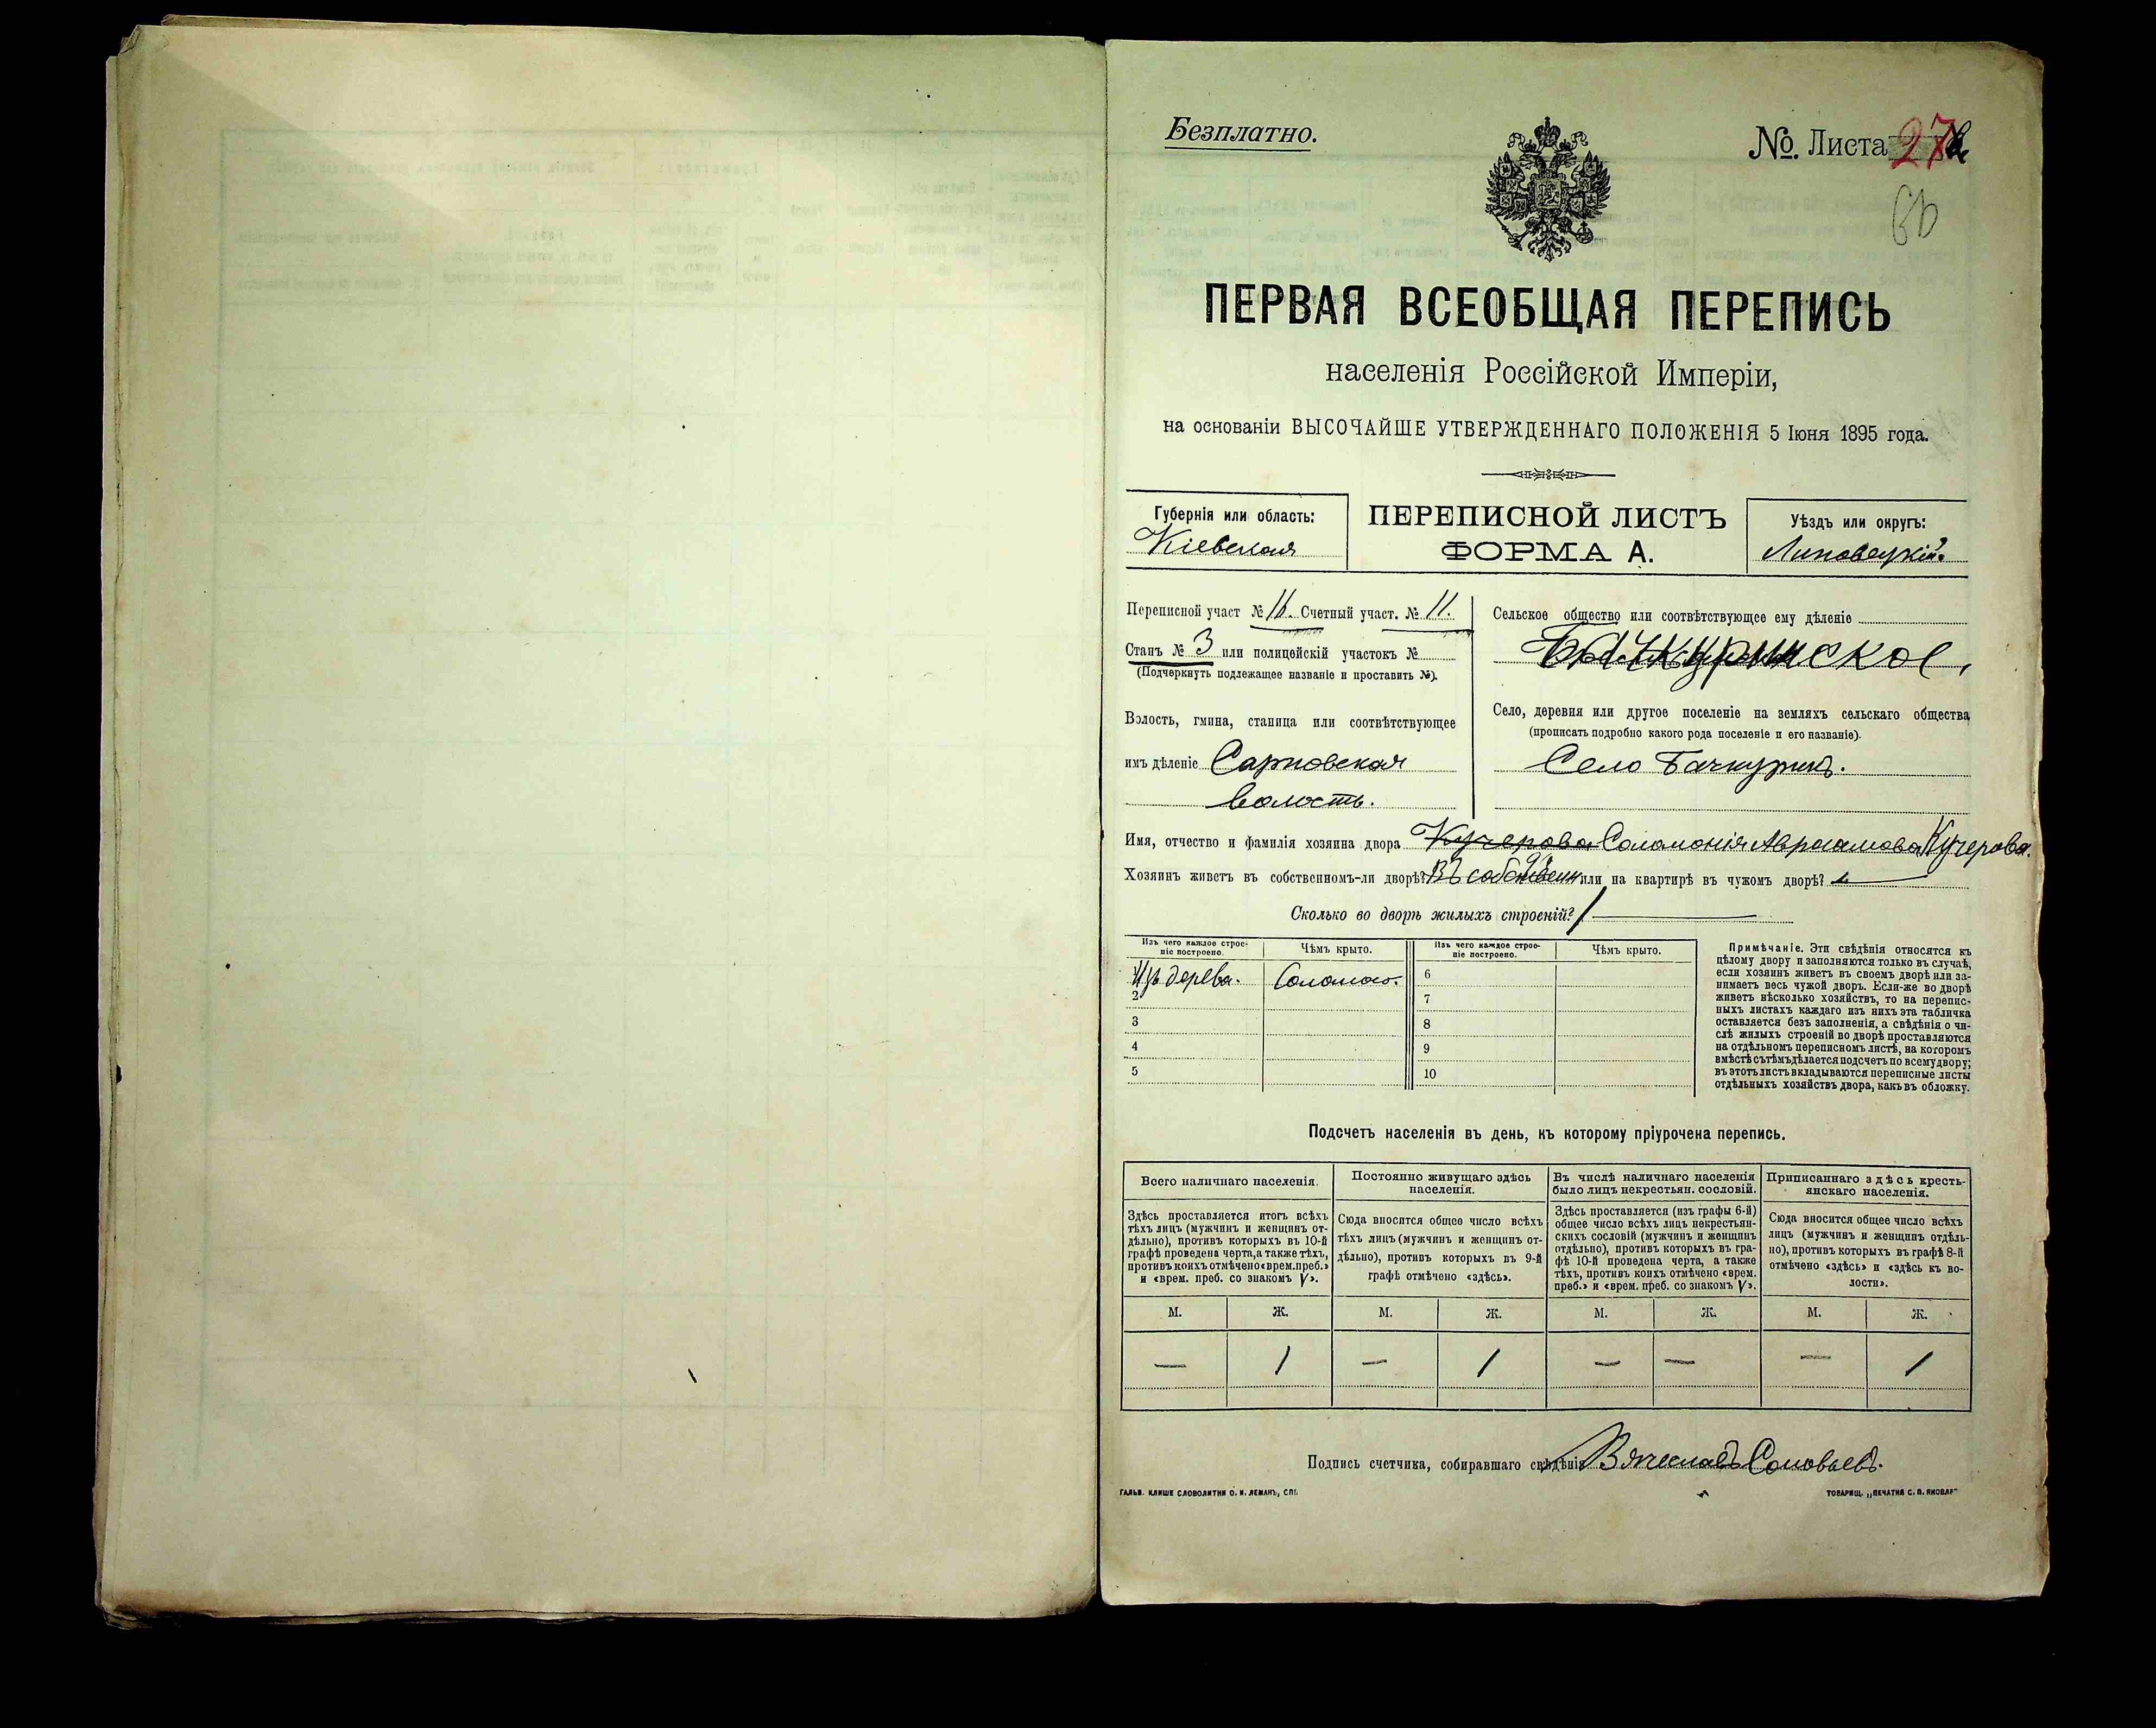 Безплатно.
№. Листа 27
ПЕРВАЯ ВСЕОБЩАЯ ПЕРЕПИСЬ
населенія Россійской Имперіи,
на основаніи ВЫСОЧАЙШЕ УТВЕРЖДЕННАГО ПОЛОЖЕНІЯ 5 Іюня 1895 года.
Губернія или область:
Кіевская
ПЕРЕПИСНОЙ ЛИСТЪ
ФОРМА А.
Уѣздъ или округъ:
Липовецкій.
Переписной участ № 16. Счетный участ. № 11.
Станъ № 3 или полицейскій участокъ №
(Подчеркнуть подлежащее названіе и проставить №).
Волость, гмина, станица или соотвѣтствующее
имъ дѣленіе Сарновская
волость.
Сельское общество или соотвѣтствующее ему дѣленіе
Село, деревня или другое поселеніе на земляхъ сельскаго общества
(прописать подробно какого рода поселеніе и его названіе).
Село Бачкуринъ.
Имя, отчество и фамилія хозяина двора Кучерова Соломонія Авраамова Кучерова.
Хозяинъ живетъ въ собственномъ-ли дворѣ? Въ собствен или на квартирѣ въ чужомъ дворѣ?
Сколько во дворѣ жилыхъ строеній? 1
Изъ чего каждое строе-
ніе построено.
Чѣмъ крыто.
Изъ дерева. Соломою.
2
3
4
5
Изъ чего каждое строе-
ніе построено.
Чѣмъ крыто.
6
7
8
9
10
Примѣчаніе. Эти свѣдѣнія относятся къ
цѣлому двору и заполняются только въ случаѣ,
если хозяинъ живетъ въ своемъ дворѣ или за-
нимаетъ весь чужой дворъ. Если-же во дворѣ
живетъ нѣсколько хозяйствъ, то на перепис-
ныхъ листахъ каждаго изъ нихъ эта табличка
оставляется безъ заполненія, а свѣдѣнія о чи-
слѣ жилыхъ строеній во дворѣ проставляются
на отдѣльномъ переписномъ листѣ, на которомъ
вмѣстѣ съ тѣмъ дѣлается подсчетъ по всему двору;
въ этотъ листъ вкладываются переписные листы
отдѣльныхъ хозяйствъ двора, какъ въ обложку.
Подсчетъ населенія въ день, къ которому пріурочена перепись.
Всего наличнаго населенія.
Здѣсь проставляется итогъ всѣхъ
тѣхъ лицъ (мужчинъ и женщинъ от-
дѣльно), противъ которыхъ въ 10-й
графѣ проведена черта, а также тѣхъ,
противъ коихъ отмѣчено «врем. преб.»
и «врем. преб. со знакомъ V».
Постоянно живущаго здѣсь
населенія.
Сюда вносится общее число всѣхъ
тѣхъ лицъ (мужчинъ и женщинъ от-
дѣльно), противъ которыхъ въ 9-й
графѣ отмѣчено «здѣсь».
Въ числѣ наличнаго населенія
было лицъ некрестьян. сословій.
Здѣсь проставляется (изъ графы 6-й)
общее число всѣхъ лицъ некрестьян-
скихъ сословій (мужчинъ и женщинъ
отдѣльно), противъ которыхъ въ гра-
фѣ 10-й проведена черта, а также
тѣхъ, противъ коихъ отмѣчено «врем.
преб.» и «врем. преб. со знакомъ V».
Приписаннаго здѣсь кресть-
янскаго населенія.
Сюда вносится общее число всѣхъ
лицъ (мужчинъ и женщинъ отдѣль-
но), противъ которыхъ въ графѣ 8-й
отмѣчено «здѣсь» и «здѣсь къ во-
лости».
М. Ж. М. Ж. М. Ж. М. Ж.
— 1 — 1 — — — 1
Подпись счетчика, собиравшаго свѣдѣнія Вячеславъ Соловьевъ.
ГАЛЬВ. КЛИШЕ СЛОВОЛИТНИ О. И. ЛЕМАНЪ, СПБ.
ТОВАРИЩ. „ПЕЧАТНЯ С. П. ЯКОВЛЕ